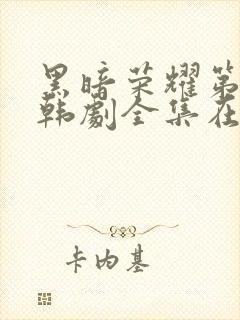 黑暗荣耀第
韩剧全集在
卡内基